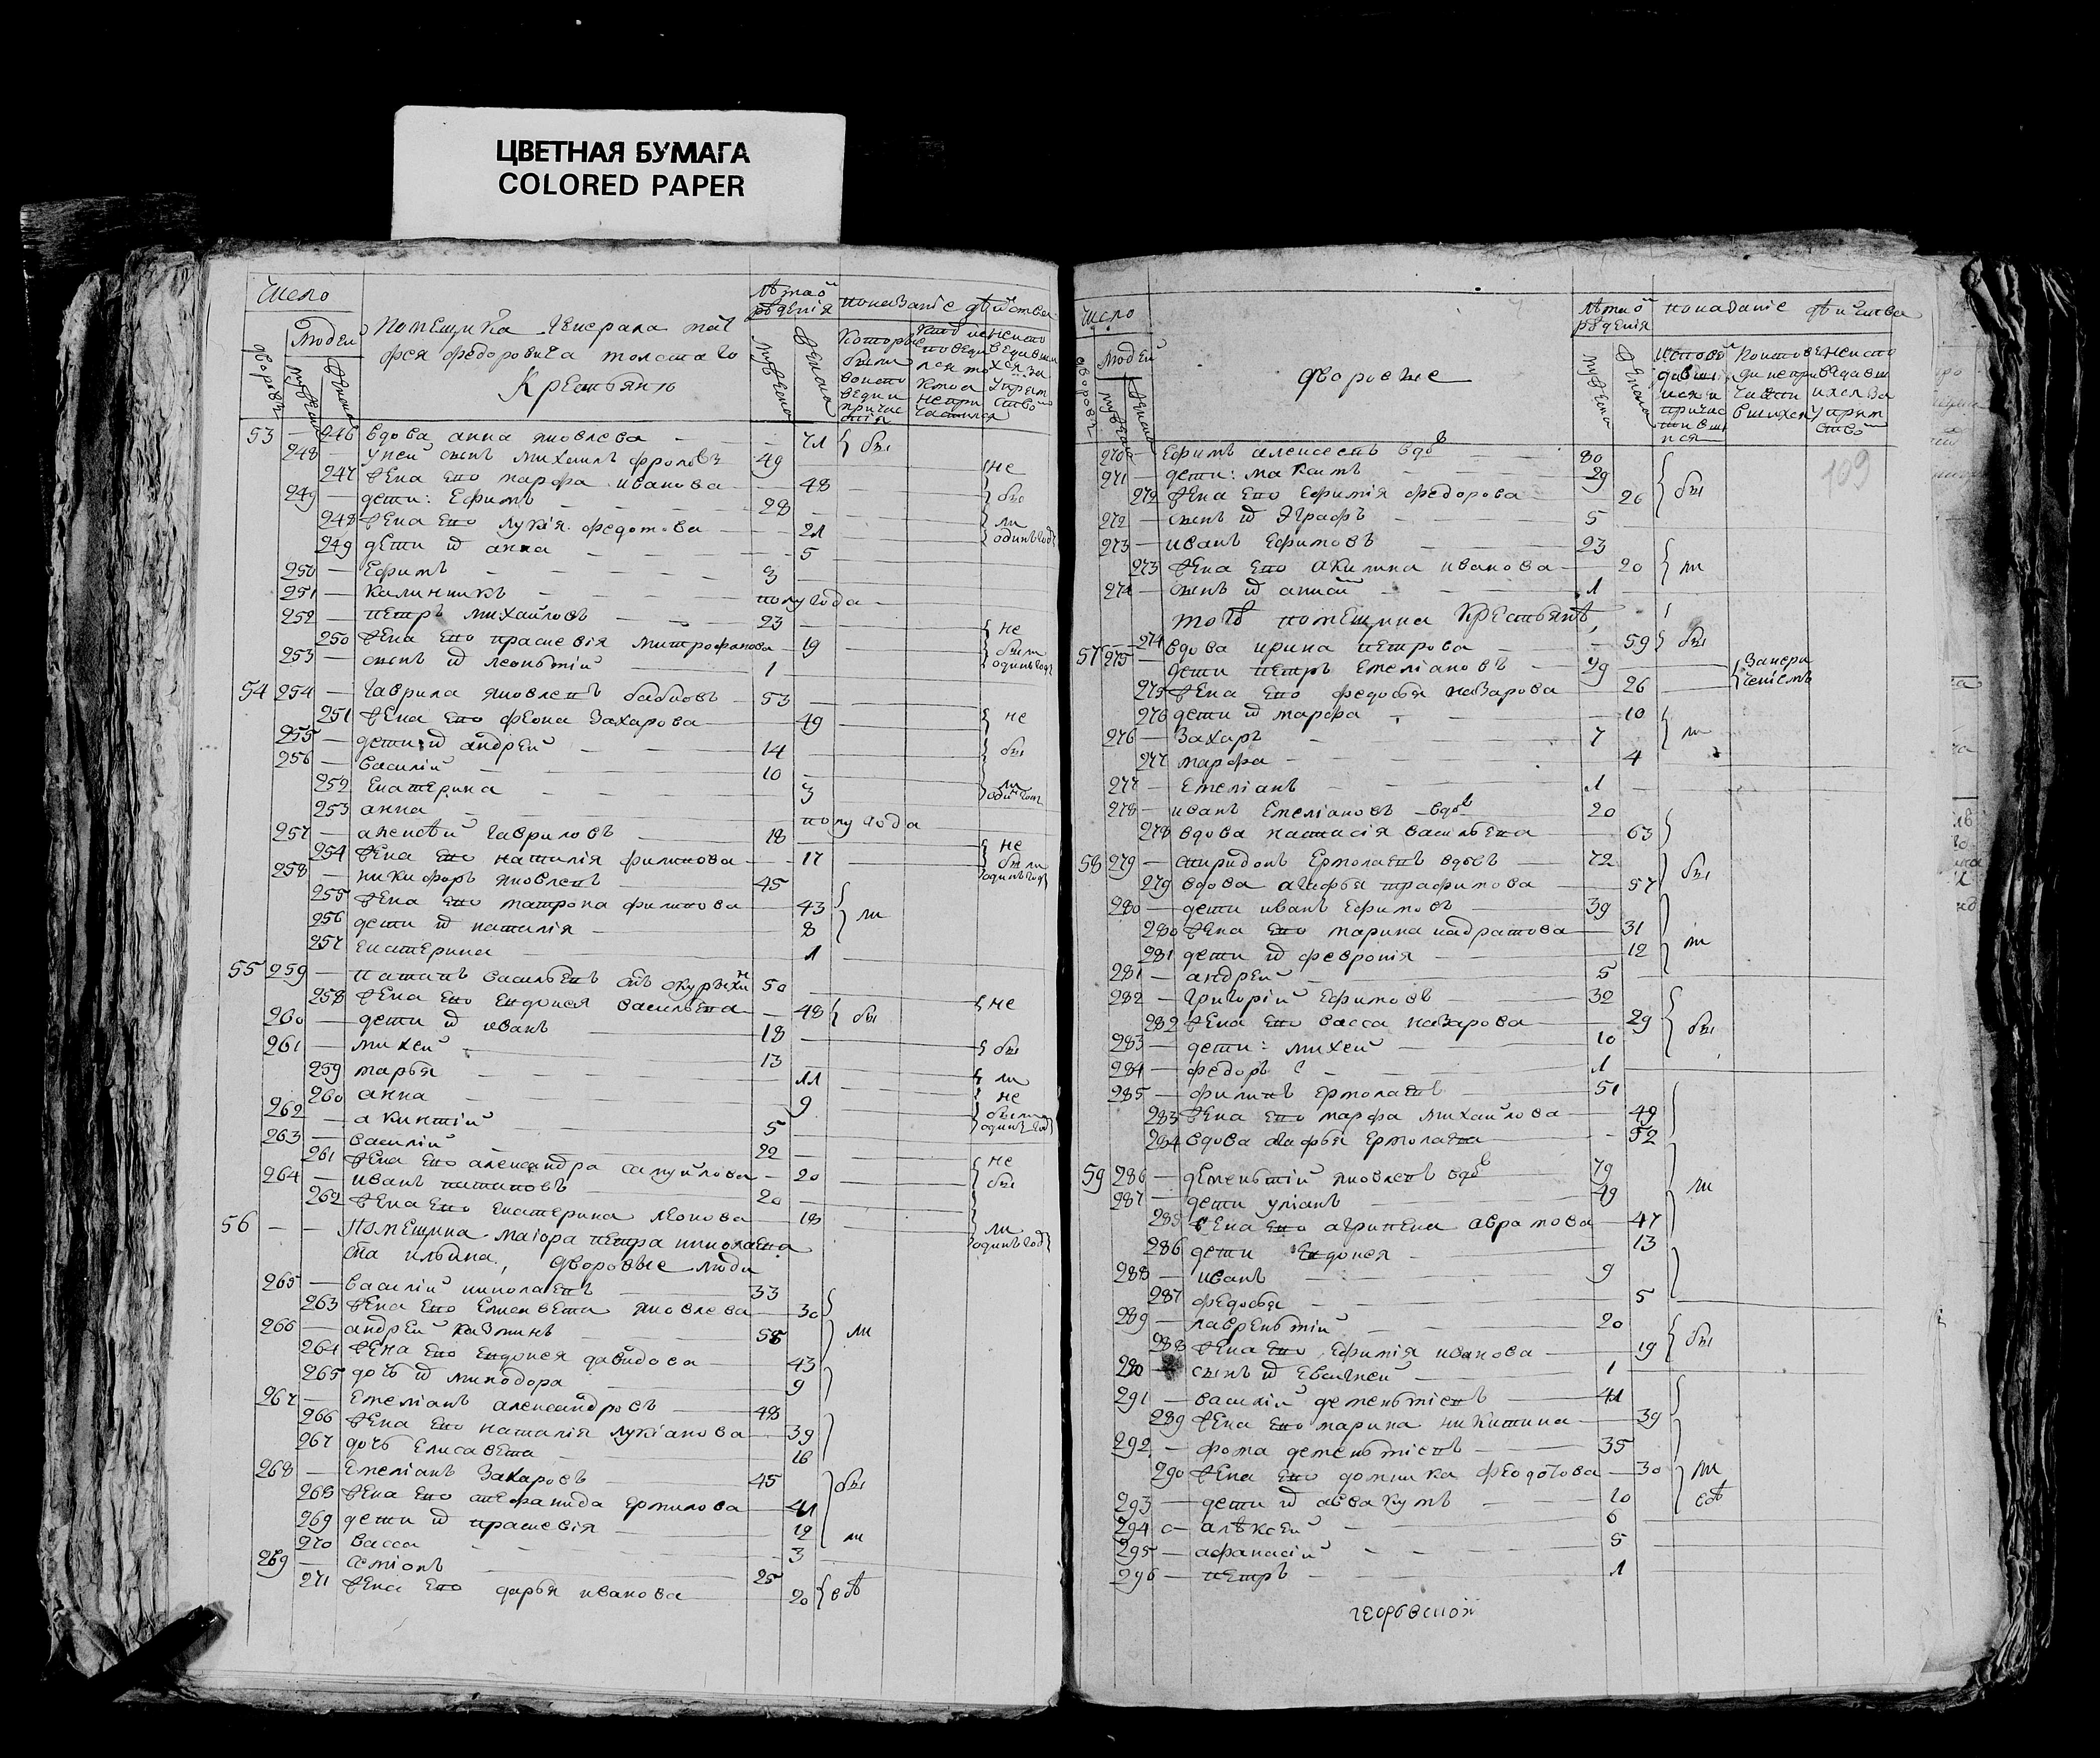 ЦВЕТНАЯ БУМАГА
COLORED PAPER
Число
Лѣта от рождения
показаніе дѣйства
Людей
дворовъ
мужеска
женска
помещика Генерала
фея федоровича толстаго
Крестьяне
53 — 246 вдова анна яковлева — 71 бы
248 — у неи сынъ михаилъ фроловъ 49
247 жена ево марфа иванова — 48 не
249 — дети: Ефимъ — 28 бы
248 жена ево лукія федотова — 21 ли
249 дети их анна — 5 одинъ год
250 — Ефимъ — 3
251 — калинникъ — полугода
252 — петръ михаиловъ — 23
250 жена ево праскевія митрофанова — 19 не были
253 — сынъ их леонътій — 1 одинъ год
54 254 — гаврила яковлевъ бабковъ — 53
251 жена ево феона захарова — 49 не
255 — дети их андрей — 14 бы
256 — василій — 10
252 екатерина — 3 ли один год
253 анна — полугода
257 — алексѣй гавриловъ — 18 не
254 жена ево наталія филипова — 17 были
258 — никифоръ яковлевъ — 45 одинъ год
255 жена ево матрона филипова — 43
256 дети их наталія — 8 ли
257 екатерина — 1
55 259 — потапъ васильевъ 50
258 жена ево евдокея васильева — 48 бы не
260 — дети их иванъ — 18
261 — михей — 13 бы
259 марья — 11 ли
260 анна — 9 не
262 — акинтій — 5 были одинъ год
263 — василій — 22
261 жена ево александра самуйлова — 20 не
264 — иванъ потаповъ — 20 бы
262 жена ево екатерина леонова — 18 ли
56 — — помещика маіора петра николаева одинъ год
сна ильина, дворовые люди
265 — василій николаевъ — 33
263 жена ево елисавета яковлева — 30
266 — андрей козминъ — 58 ли
264 жена ево евдокея давидова — 43
265 дочь их минодора — 9
267 — емеліанъ александровъ — 48
266 жена ево наталія лукіанова — 39
267 дочь елисавета — 16
268 — емеліанъ захаровъ — 45 бы
268 жена ево стефанида ермилова — 41
269 дети их праскевія — 12 ли
270 васса — 3
269 — семіонъ — 25
271 жена ево дарья иванова — 20
Число
Лѣта от рождения
показаніе дѣйства
Людей
дворовъ
мужеска
женска
дворовые
109
270 — Ефимъ алексеевъ вдов 80
271 — дети: максимъ — 29
272 жена ево ефимія федорова — 26 бы
272 — сынъ их Эграфъ — 5
273 — иванъ ефимовъ — 23
273 жена ево акилина иванова — 20 ли
274 — сынъ их — 1
того помещика крестьянѣ,
57 274 вдова ирина петрова — 59 бы
275 — дети петръ емеліановъ — 29
275 жена ево федосья назарова — 26
276 дети их марфа — 10
276 — захаръ — 7 ли
277 марфа — 4
277 — емеліанъ — 1
278 — иванъ емеліановъ вдов 20
278 вдова настасія васильева — 63
58 279 — спиридонъ ермолаевъ вдовъ — 72
279 вдова агафья трафимова — 57 бы
280 — дети иванъ ефимовъ — 39
280 жена ево марина кадратова — 31
281 дети их февронія — 12 ли
281 — андрей — 5
282 — григорій ефимовъ — 32
282 жена ево васса назарова — 29
283 — дети: михей — 10 бы
284 — федоръ — 1
285 — филипъ ермолаевъ — 51
283 жена ево марфа михайлова — 49
284 вдова агафья ермолаева — 52
59 286 — дементьтій яковлевъ вдов 79
287 — дети уліанъ — 49 ли
285 жена ево агрипена аврамова — 47
286 дети евдокея — 13
288 — иванъ — 9
287 федосья — 5
289 — лаврентьтій — 20
288 жена ево ефимія иванова — 19 бы
290 — сынъ их евсигней — 1
291 — василій дементьтіевъ — 41
289 жена ево марина никитина — 39
292 — фома дементьтіевъ — 35
290 жена ево домника феодотова — 30 ли
293 — дети их аввакумъ — 10
294 — алѣксей — 6
295 — афанасій — 5
296 — петръ — 1